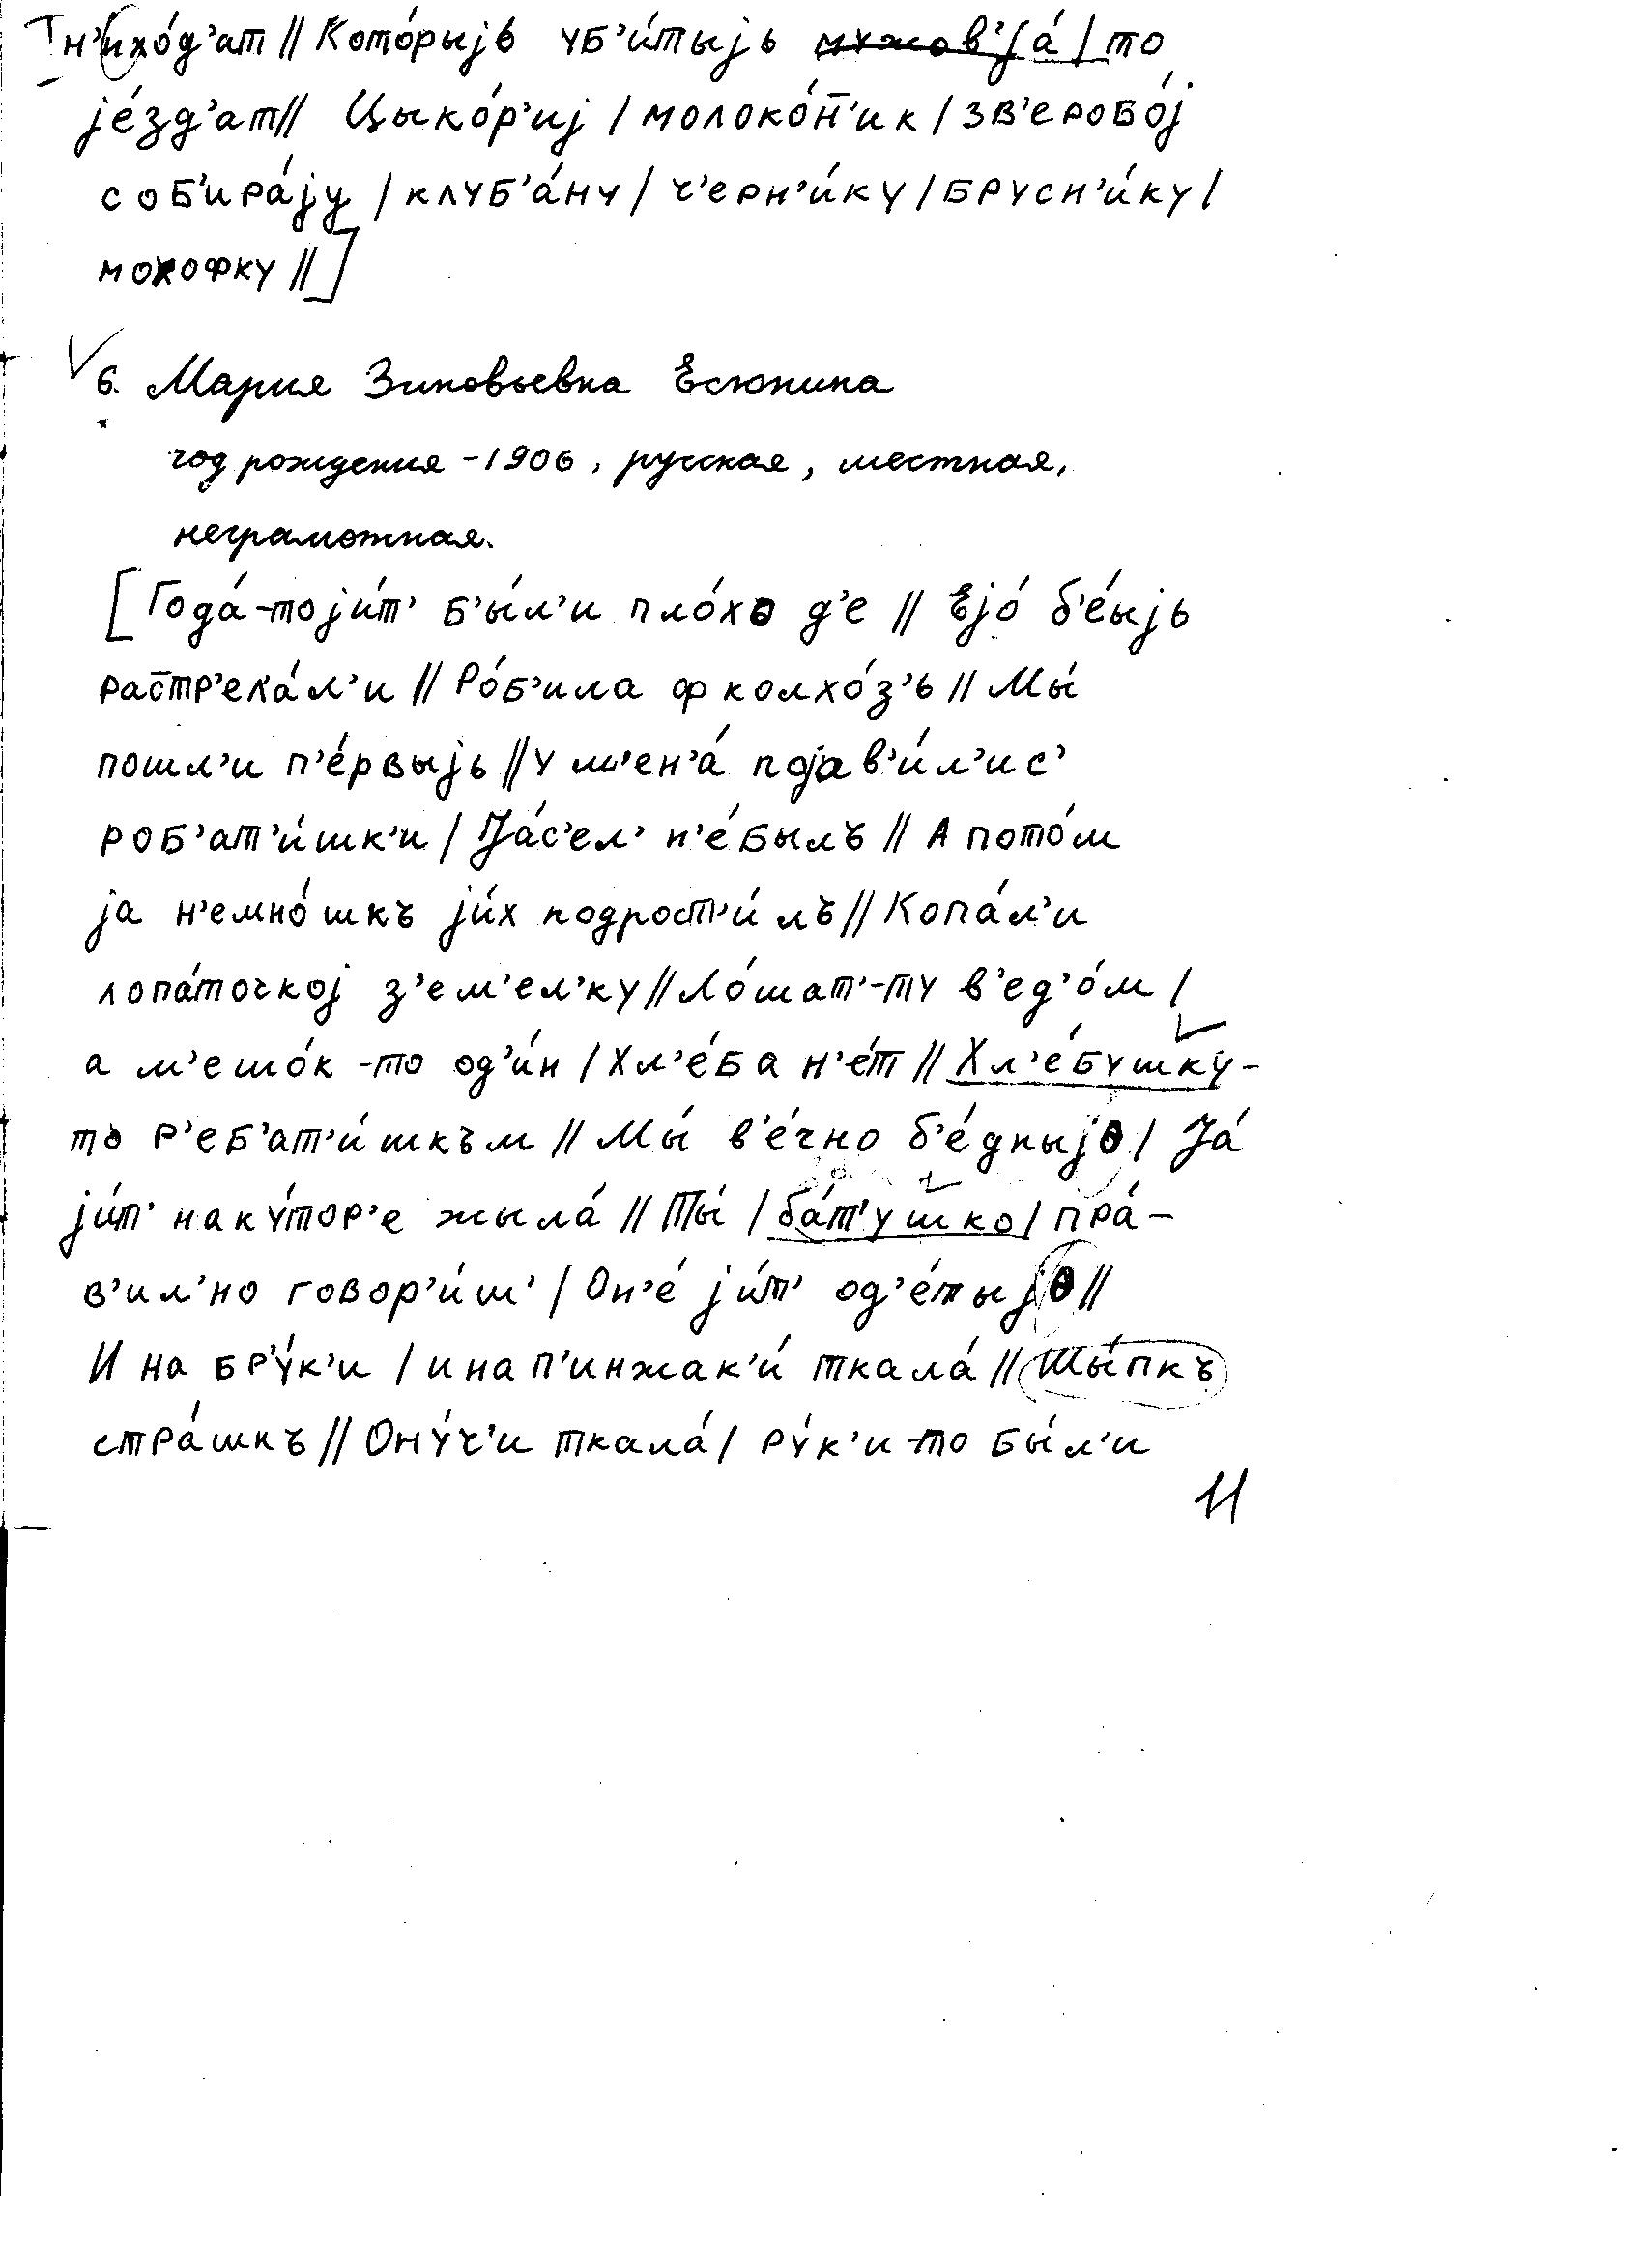 н'ихо́д'ат // Кото́рыјь уб'и́тыјь мужов'ја́ / то
је́зд'ат // Цыко́р'иј / молоко́н̄'ик / зв'еробо́ј
соб'ира́ју / клуб'а́ну / ч'ерн'и́ку / брусн'и́ку /
мохофку // ]
6. Мария Зиновьевна Есюнина
год рождения - 1906, русская, местная,
неграмотная.
[ Года́-то ји́т' б'ы́л'и пло́хо д'е // Ејо́ б'е́ыјь
растр'ека́л'и // Ро́б'ила ф колхо́з'ь // Мы́
пошл'и п'е́рвыјь // У м'ен'а́ појав'и́л'ис'
роб'ат'и́шк'и / Ја́с'ел' н'е́былъ // А пото́м
ја н'емно́шкъ ји́х подрост'и́лъ // Копа́л'и
лопа́точкој з'ем'ел'ку // Ло́шат'-ту в'ед'о́м /
а м'ешо́к-то од'и́н / Хл'е́ба н'е́т // Хл'е́бушку-
то р'еб'ат'и́шкъм // Мы́ в'е́чно б'е́дныјо / Ја́
ји́т' на ку́тор'е жыла́ // Ты́ / ба́т'ушко / пра́-
в'ил'но говор'и́ш' / Он'е́ ји́т' од'е́тыјо //
И на бр'у́к'и / и на п'инжак'и́ ткала́ // Шы́пкъ
стра́шкъ // Ону́ч'и ткала́ / ру́к'и-то бы́л'и
11